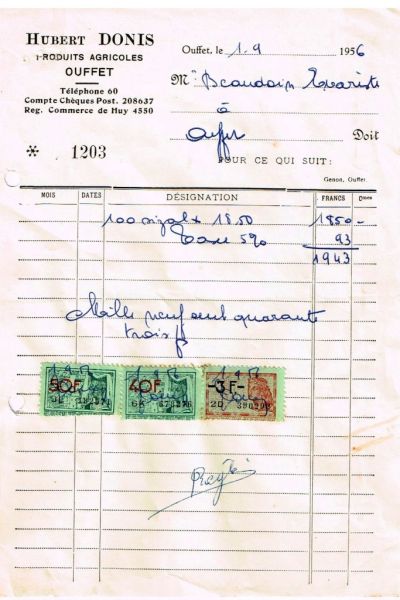 HUBERT DONIS
PRODUITS AGRICOLES
OUFFET
Téléphone 60
Compte Chèques Post. 208637
Reg. Commerce de Huy 4550
* 1203
Ouffet, le 1.9 1956
Mr Beaudoin Evariste
à
Doit
POUR CE QUI SUIT:
Genon, Ouffet.
MOIS DATES DÉSIGNATION FRANCS Dmes
100 1850 1850-
Taxe 5% 93
1943
Mille neuf cent quarante
trois f
50F 40F -3F-